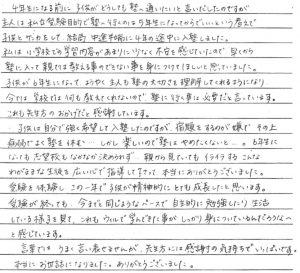 4年生になる前に、子供がどうしても塾へ通いたいと言いだしたのですが
主人は私立受験目的で塾へ行くのは5年生になってからでいいという考えで
子供とケンカをして、結局、中途半端に4年の途中に入塾しました。
私は、小学校での学習内容があまりに少なく不安を感じていたので、早くから
塾に入って親では教える事のできない事を身につけてほしいと思っていました。
子供が6年生になって、ようやく主人も塾の大切さを理解してくれるようになり
今では学校では何も教えてくれないので塾に行く事は必要だと言っています。
これも先生方のおかげだと感謝しています。
子供は自分で強く希望して入塾したのですが、宿題をするのが嫌で、その上
病弱でよく塾を休む…しかし楽しいので塾はやめたくないと…。6年生に
なっても志望校もなかなか決められず…親から見ていてもイライラするこんな
わがままな生徒を広い心で指導して下さって、本当にありがとうございました。
受験を体験し、この一年で子供が精神的にとても成長したと思います。
受験が終っても、今までと同じようなペースで自主的に勉強したり生活
している様子を見て、これもウィルで学んできた事がしっかり身についているんだろうな〜
と感じています。
言葉では、うまく言い表せませんが、先生方には感謝の気持ちでいっぱいです。
本当にお世話になりました。ありがとうございました。